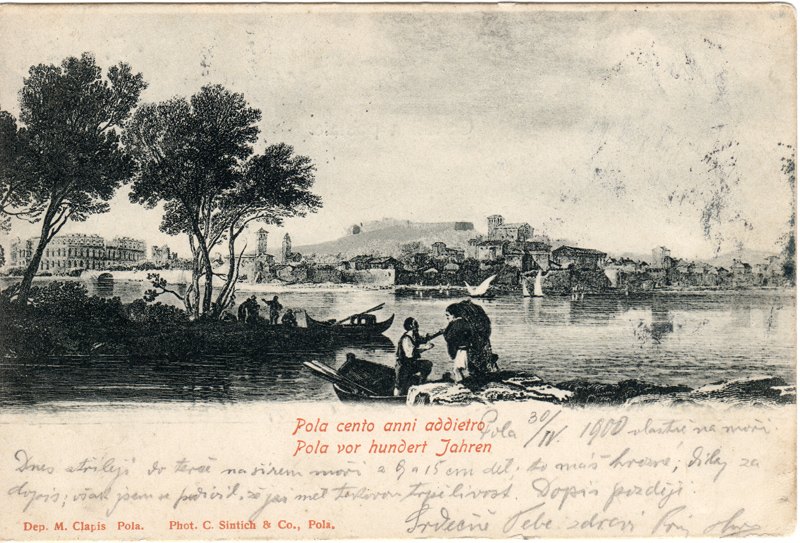 Pola cento anni addietro
Pola vor hundert Jahren
Pola 30/IV. 1900 vlastně na moři
Dnes střílejí do terče na širém moři a 9 a 15 cm děl, to máš hrozné, díky za
dopis; však jsem se podivil, že jas měl takovou trpělivost. Dopis později.
Srdečně Tebe zdraví
Dep. M. Clapis Pola. Phot. C. Sintich & Co., Pola.